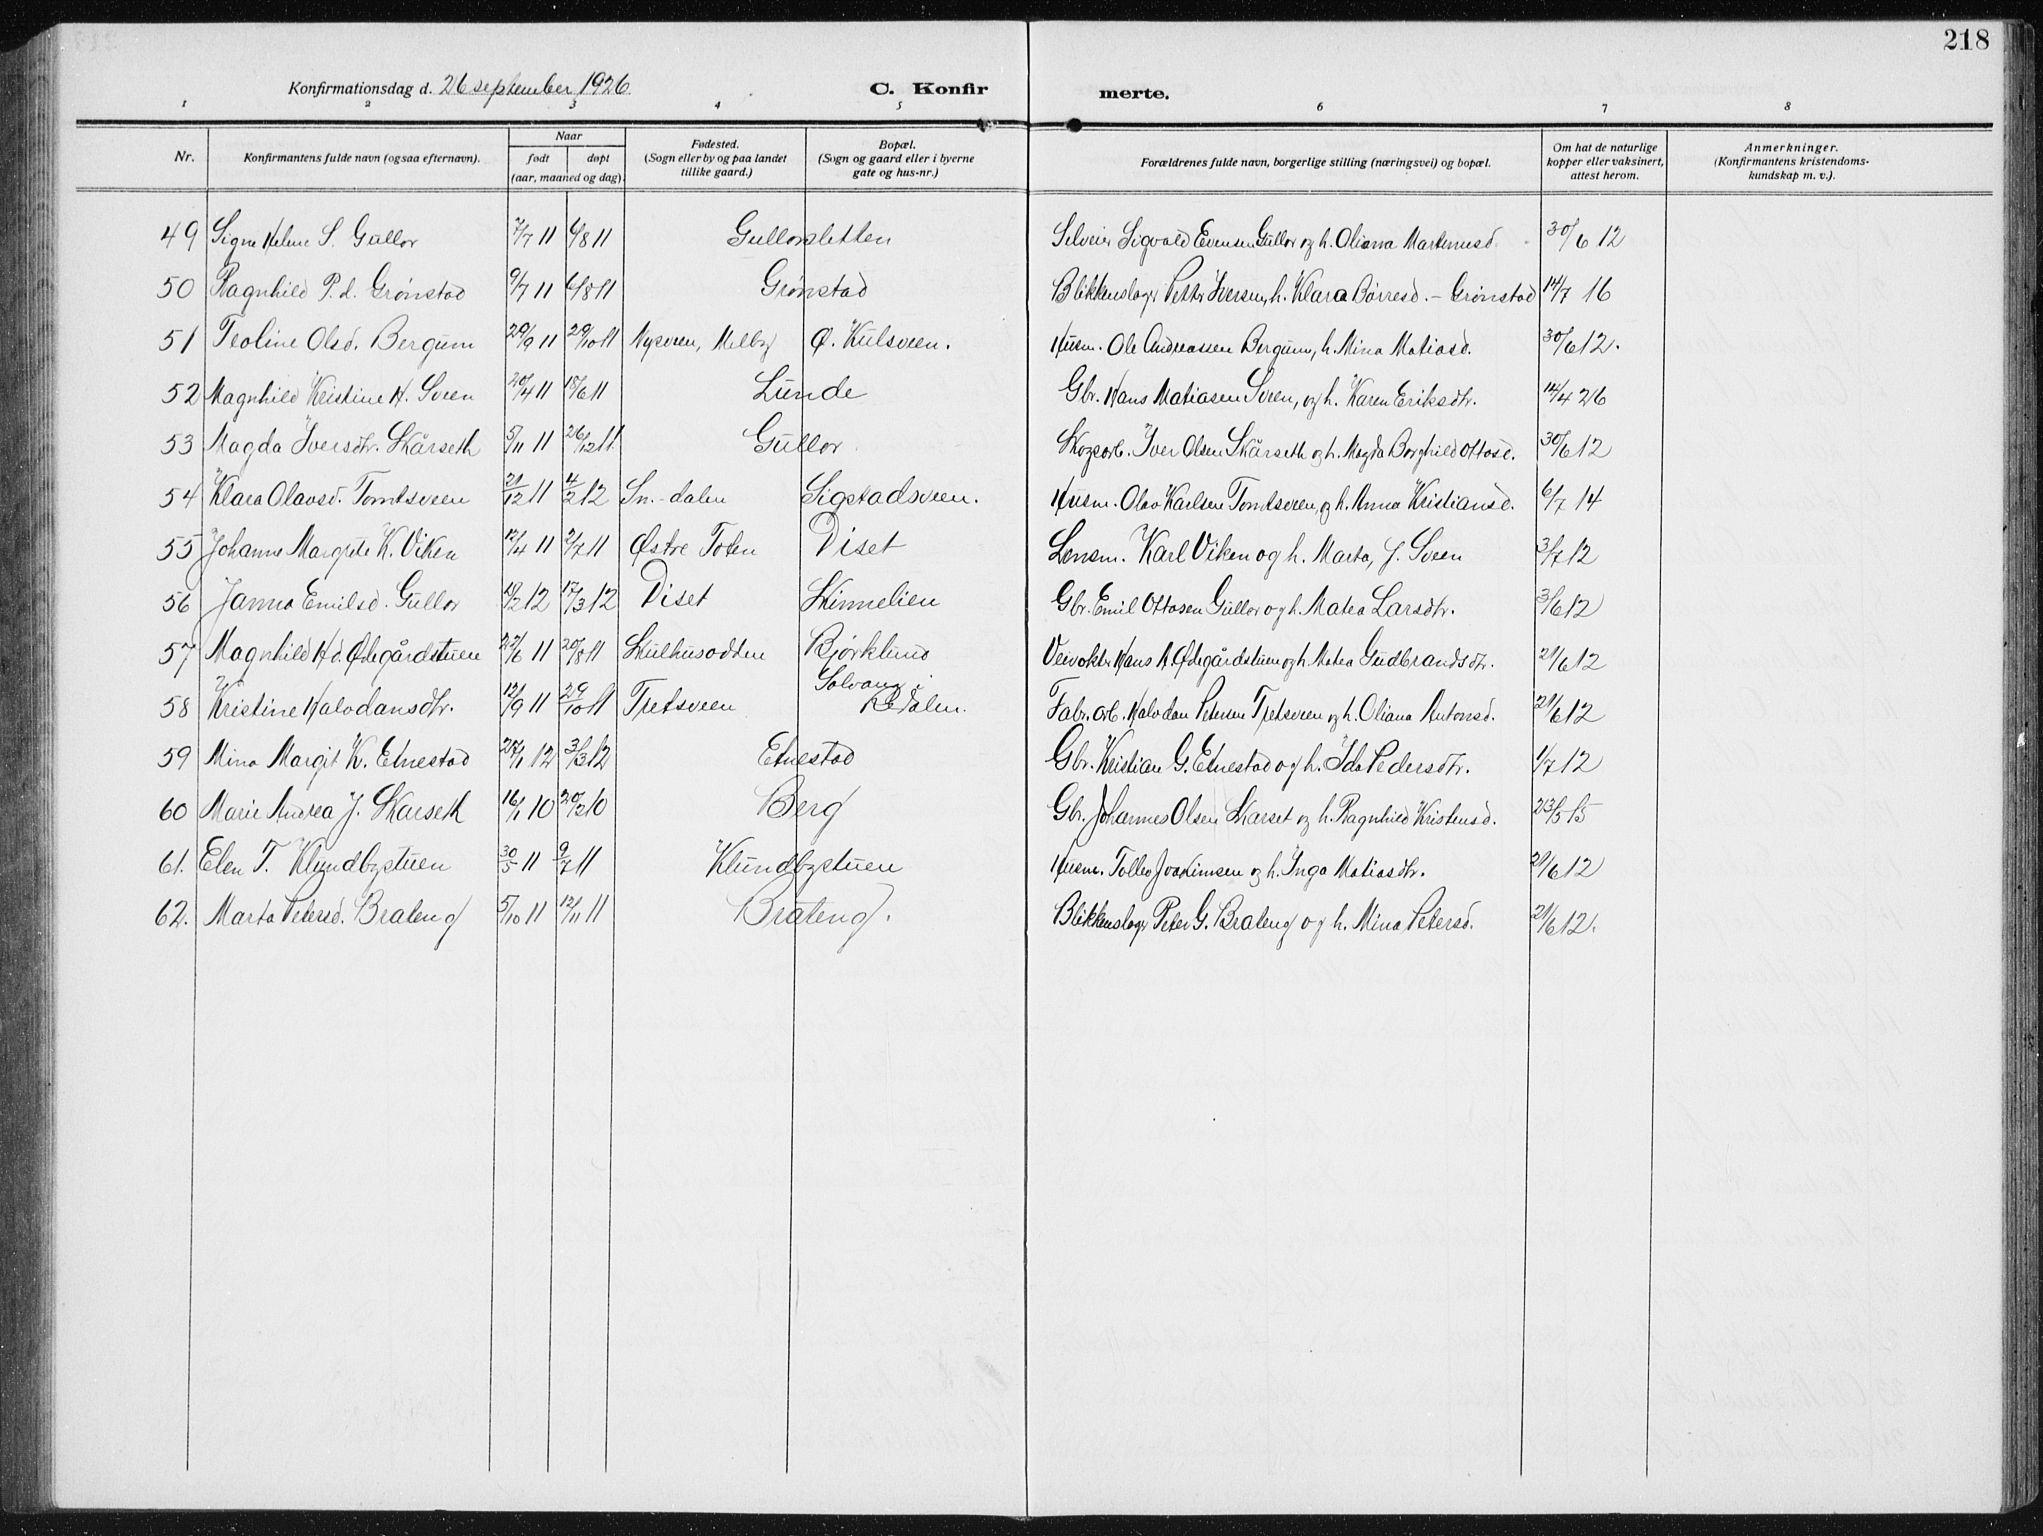 218
Konfirmationsdag d. 26 september 1926
C. Konfir
merte.
1 2 3 4 5 6 7 8
Nr.
Konfirmantens fulde navn (ogsaa efternavn).
Naar
født døpt
(aar, maaned og dag).
Fødested.
(Sogn eller by og paa landet
tillike gaard.)
Bopæl.
(Sogn og gaard eller i byerne
gate og hus-nr.)
Forældrenes fulde navn, borgerlige stilling (næringsvei) og bopæl.
Om hat de naturlige
kopper eller vaksinert,
attest herom.
Anmerkninger.
(Konfirmantens kristendoms-
kundskap m. v.).
49 Signe Helene S. Gullor 7/7 11 6/8 11 Gullorsletten Selveier Sigvald Evensen Gullor og h. Oliana Martinusd. 30/6 12
50 Ragnhild P.d. Grønstad 9/7 11 6/8 11 Grønstad Blikkenslager Petter Iversen, h. Klara Børresd. - Grønstad 14/7 16
51 Teoline Olsd. Bergum 29/9 11 29/10 11 Nysveen, Melby Ø. Kulsveen. Husm. Ole Andreassen Bergum, h. Mina Matiasd. 30/6 12.
52 Magnhild Kristine H. Sveen 20/4 11 18/6 11 Lunde Gbr. Hans Matiasen Sveen, og h. Karen Eriksdtr. 14/4 26
53 Magda Iversdtr. Skårseth 5/11 11 26/12 11. Gullor Skogsarb. Iver Olsen Skårseth og h. Magda Borghild Ottosd. 30/6 12
54 Klara Olavsd. Tomtsveen 21/12 11 4/2 12 Sn.-dalen Sigstadsveen. Husm. Olav Karlsen Tomtsveen, og h. Anna Kristiansd. 6/7 14
55 Johanne Margrete K. Viken 12/4 11 2/7 11 Østre Toten Diset Lensm. Karl Viken og h. Marta, f. Sveen 3/7 12
56 Janna Emilsd. Gullor 19/2 12 17/3 12 Diset Skinnelien Gbr. Emil Ottosen Gullor og h. Matea Larsdtr. 3/6 12
57 Magnhild Hd. Ødegårdstuen 22/6 11 20/8 11 Skulhusodden Bjørklund Veivokter Hans A. Ødegårdstuen og h. Matea Gudbrandsdtr. 21/6 12
58 Kristine Halvdansdtr. 12/9 11 29/10 11 Tretsveen Solvang i
Redalen. Fabr. arb. Halvdan Petersen Tretsveen og h. Oliana Antonsd. 21/6 12
59 Mina Margit K. Etnestad 25/1 12 3/3 12 Etnestad Gbr. Kristian G. Etnestad og h. Ida Pedersdtr. 1/7 12
60 Marie Andrea J. Skarseth 16/1 10 20/2 10 Berg Gbr. Johannes Olsen Skarset og h. Ragnhild Kristensd. 23/5 15
61. Elen T. Klundbystuen 30/5 11 9/7 11 Klundbystuen Husm. Tollev Joakimsen og h. Inga Matiasdtr. 21/6 12
62. Marta Petersd. Brateng 5/10 11 12/11 11 Brateng. Blikkenslager Peter G. Brateng og h. Mina Petersd. 21/6 12.